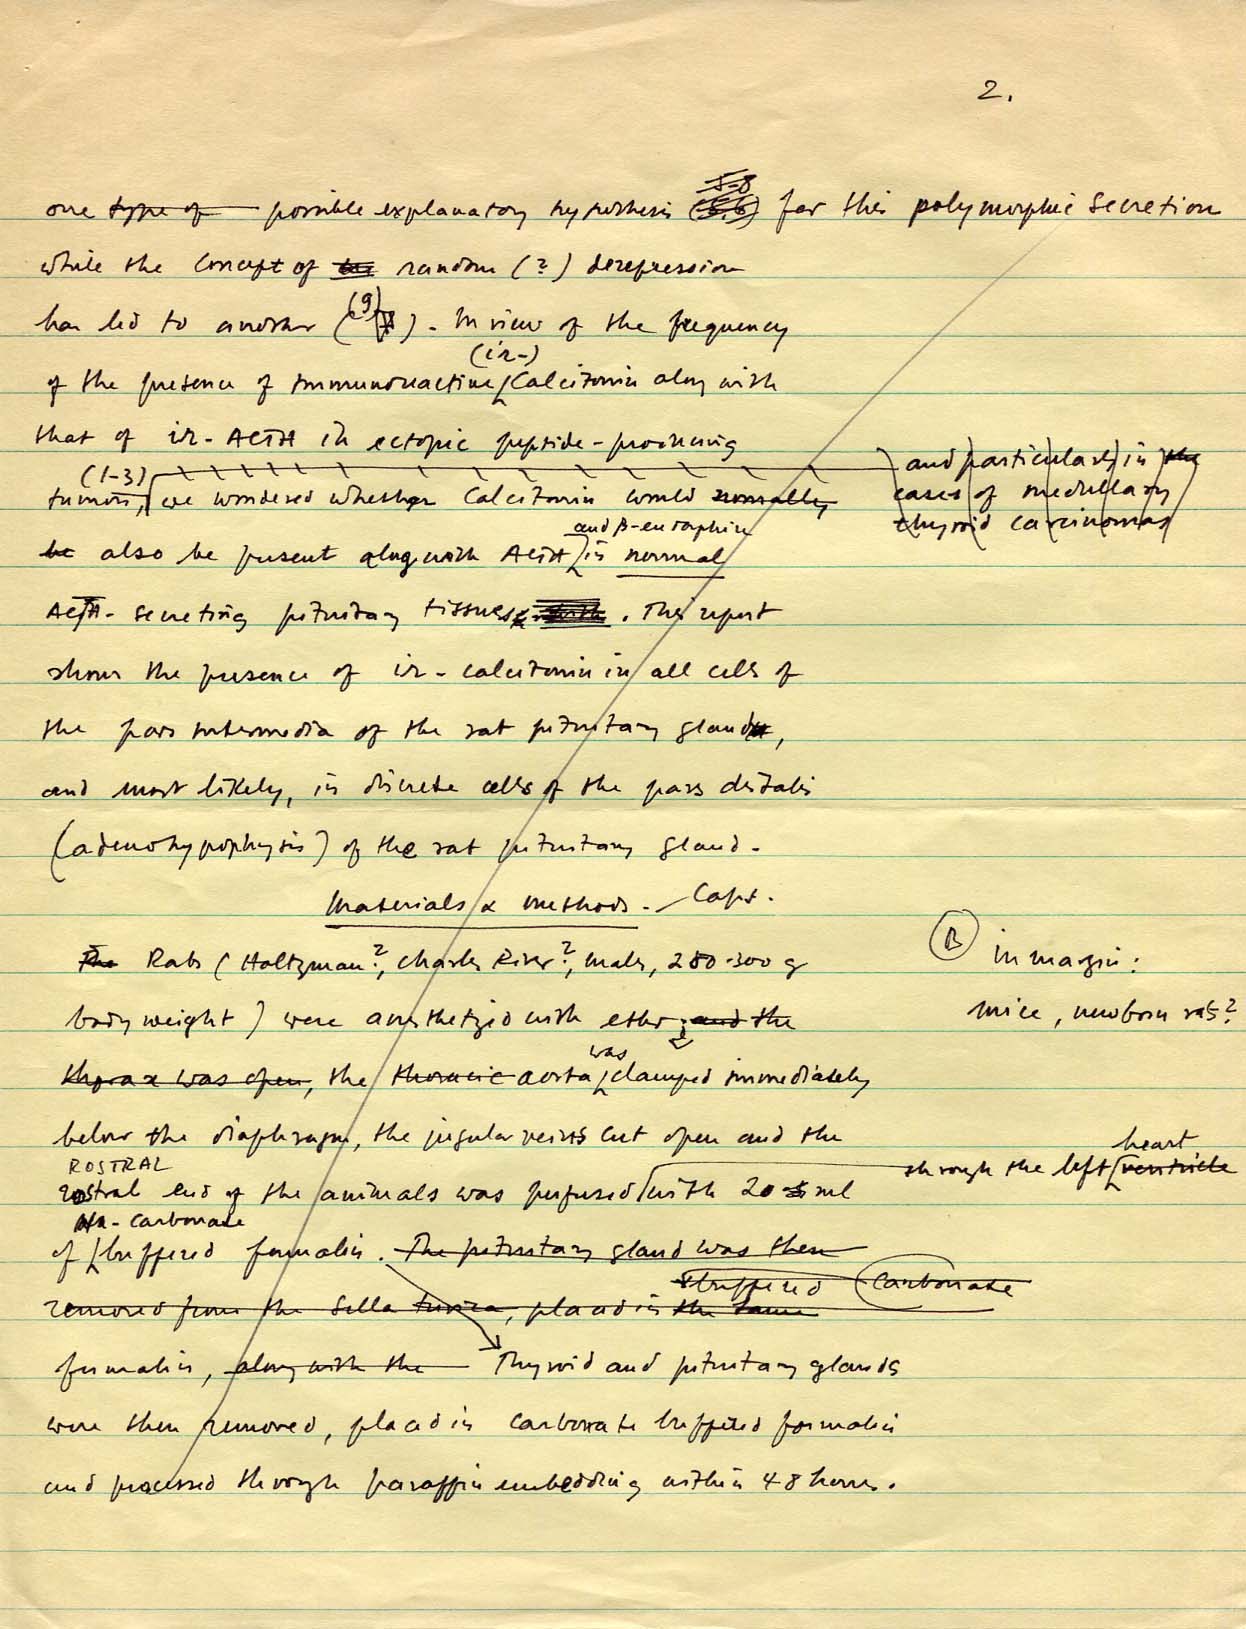 2.
one type of possible explanatory hypothesis (5,6) 5-8 for this polymorphic secretion
while the concept of random (?) derepression
has led to another (9). In view of the frequency
(ir-)
of the presence of immunoreactive calcitonin along with
that of ir-ACTH in ectopic peptide-producing
and particularly in the
cases of medullary
thyroid carcinomas
(1-3)
tumors, we wondered whether calcitonin would normally
and β-endorphin
be also be present along with ACTH in normal
ACTH-secreting pituitary tissues with. This report
shows the presence of ir-calcitonin in all cells of
the pars intermedia of the rat pituitary gland,
and most likely, in discrete cells of the pars distalis
(adenohypophysis) of the rat pituitary gland.
Materials & methods. Caps.
The Rats (Holtzman?, Charles River?, males, 280-300 g
B in margin:
mice, newborn rats?
body weight) were anesthetized with ether; and the
was
thorax was open, the thoracic aorta clamped immediately
below the diaphragm, the jugular veins cut open and the
ROSTRAL
heart
rostral end of the animals was perfused with 20 ml
through the left ventricle
Na-carbonate
of buffered formalin. The pituitary gland was then
buffered carbonate
removed from the Sella turcica, placed in the same
formalin, along with the Thyroid and pituitary glands
were then removed, placed in carbonate buffered formalin
and processed through paraffin embedding within 48 hours.